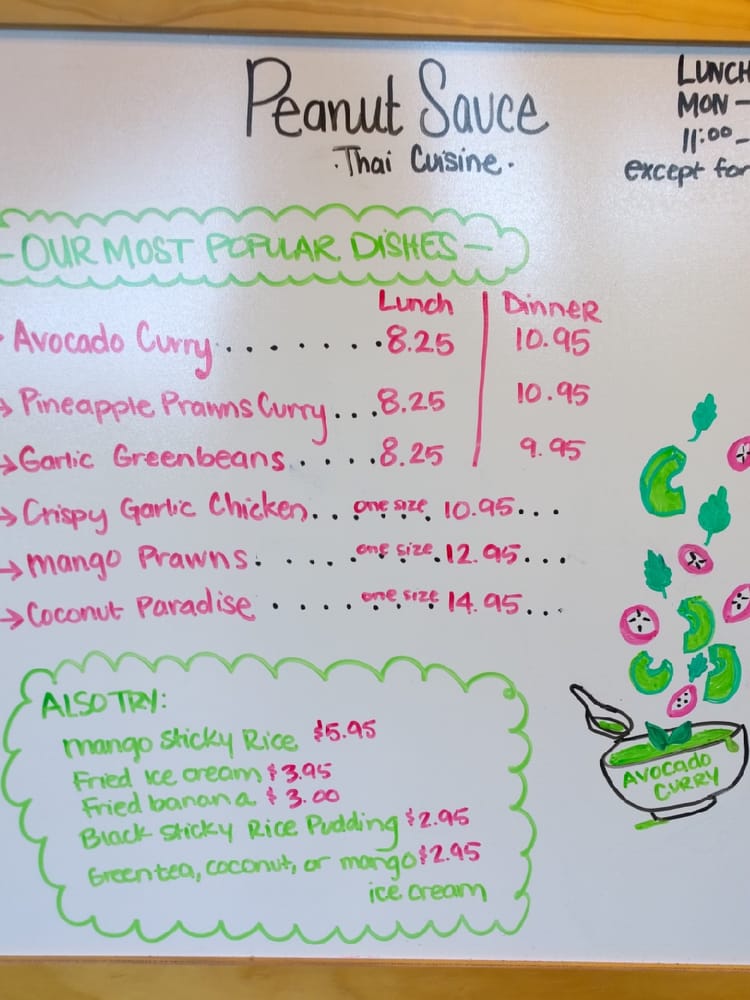 Peanut Sauce
·Thai Cuisine·
LUNCH
MON –
11:00 –
except for
– OUR MOST POPULAR DISHES –
Lunch | Dinner
Avocado Curry . . . . . . . . 8.25 10.95
→ Pineapple Prawns Curry . . . 8.25 10.95
→ Garlic Greenbeans . . . . . 8.25 9.95
→ Crispy Garlic Chicken . . one size 10.95 . . .
→ Mango Prawns . . . . . one size 12.95 . . .
→ Coconut Paradise . . . . one size 14.95 . . .
ALSO TRY:
Mango Sticky Rice $5.95
Fried Ice cream $3.95
Fried banana $3.00
Black Sticky Rice Pudding $2.95
Green tea, coconut, or mango $2.95
ice cream
AVOCADO
CURRY